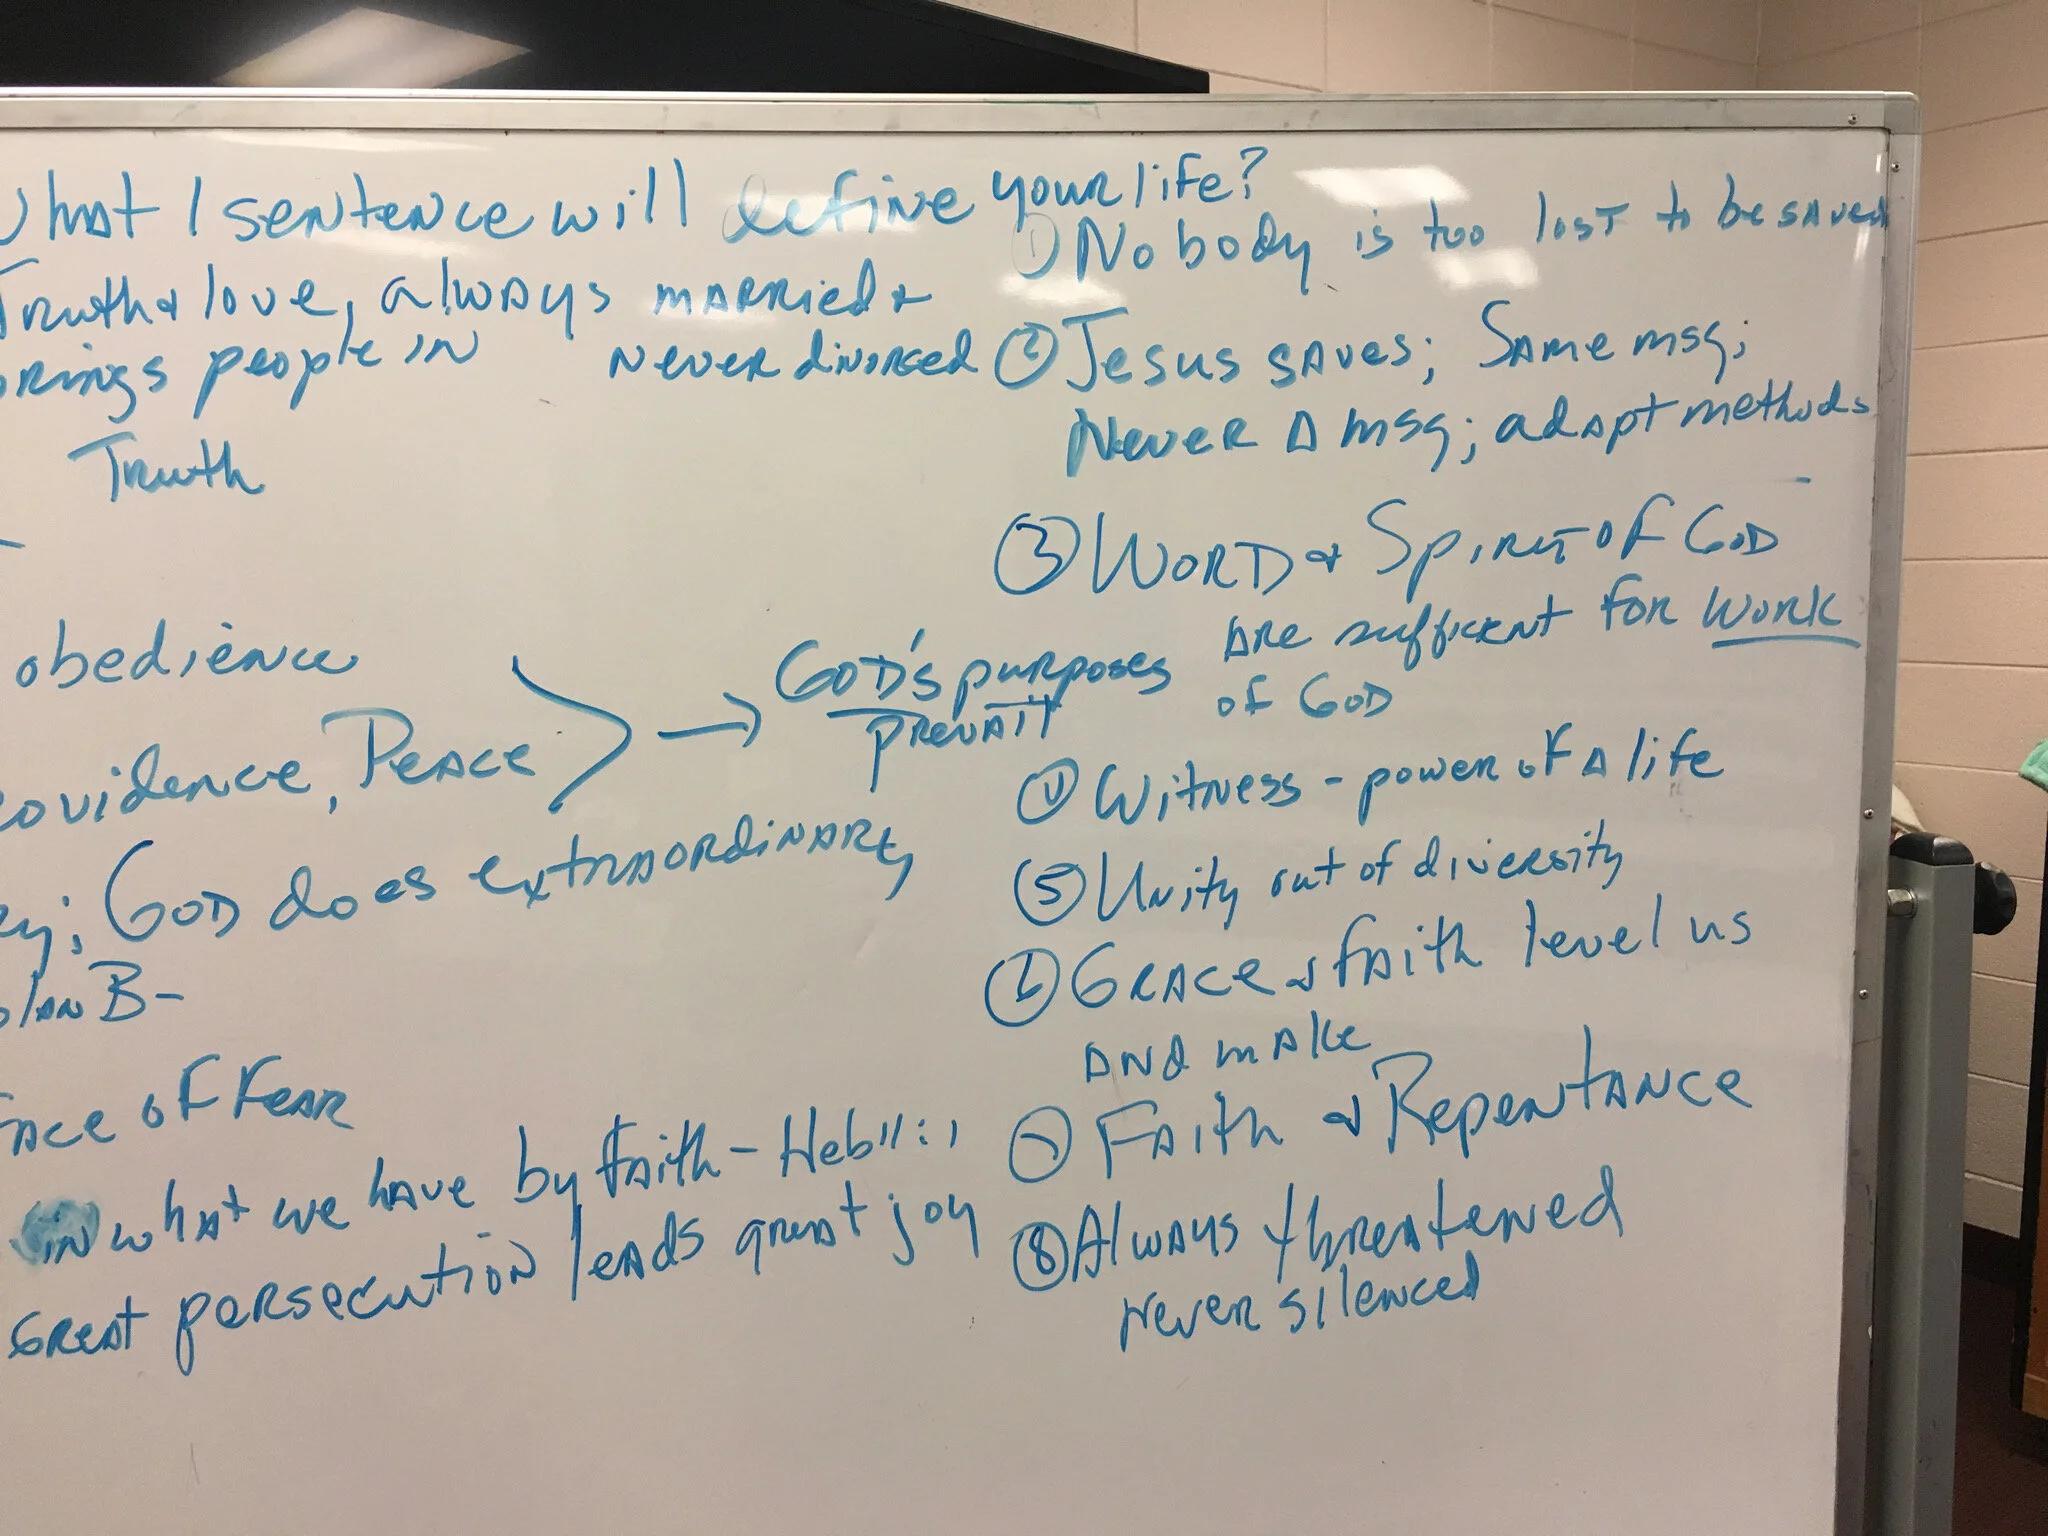 What 1 sentence will define your life?
Truth & love, always married &
never divorced
brings people in
Truth
obedience
ovidence, Peace
→ God's purposes
prevail
ey; God does extraordinary
plan B-
ace of Fear
in what we have by faith - Heb 11:1
Great persecution leads great joy
① Nobody is too lost to be saved
② Jesus saves; Same msg;
Never Δ msg; adapt methods
③ Word & Spirit of God
are sufficient for work
of God
④ Witness - power of a life
⑤ Unity out of diversity
⑥ Grace & faith level us
and make
⑦ Faith & Repentance
⑧ Always threatened
never silenced